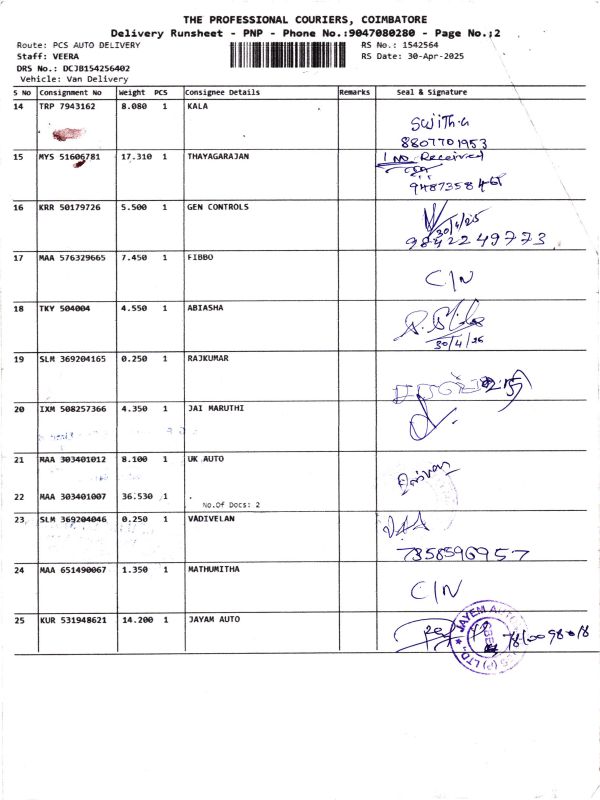 THE PROFESSIONAL COURIERS, COIMBATORE
Delivery Runsheet - PNP - Phone No.:9047080280 - Page No.;2
Route: PCS AUTO DELIVERY RS No.: 1542564
Staff: VEERA RS Date: 30-Apr-2025
DRS No.: DCJB154256402
Vehicle: Van Delivery
S No Consignment No Weight PCS Consignee Details Remarks Seal & Signature
14 TRP 7943162 8.080 1 KALA
Sujith.G
8807701953
15 MYS 51606781 17.310 1 THAYAGARAJAN
1 No Received
16 KRR 50179726 5.500 1 GEN CONTROLS
30/4/25
9842249773
17 MAA 576329665 7.450 1 FIBBO
C/N
18 TKY 504004 4.550 1 ABIASHA
30/4/25
19 SLM 369204165 0.250 1 RAJKUMAR
20 IXM 508257366 4.350 1 JAI MARUTHI
21 MAA 303401012 8.100 1 UK AUTO
22 MAA 303401007 36.530 1
No.Of Docs: 2
23 SLM 369204046 0.250 1 VADIVELAN
7358596957
24 MAA 651490067 1.350 1 MATHUMITHA
C/N
25 KUR 531948621 14.200 1 JAYAM AUTO